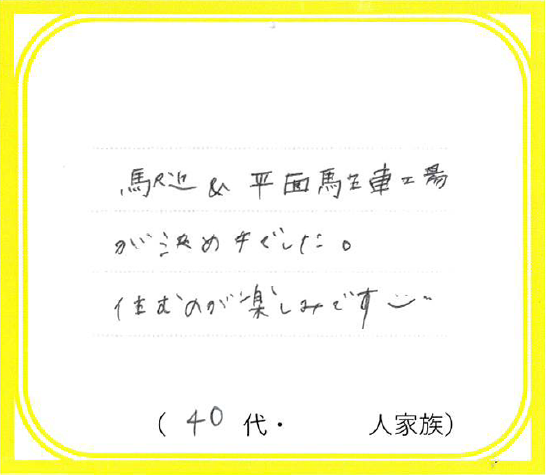 駅近&平面駐車場
が決めすでした。
住むのが楽しみです
(40代・ 人家族)